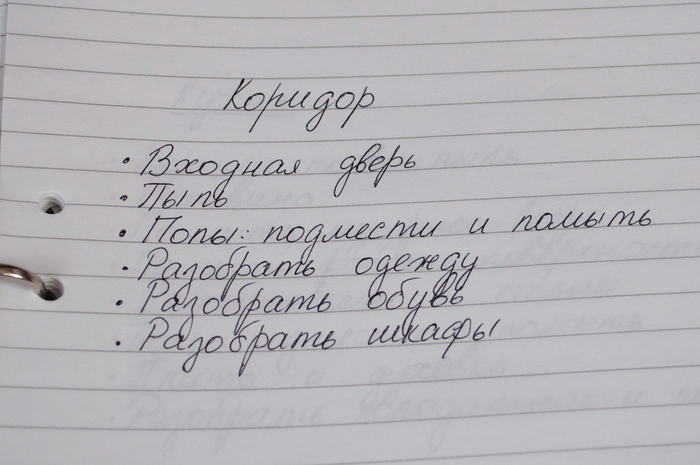 Коридор
• Входная дверь
• Пыль
• Полы: подмести и помыть
• Разобрать одежду
• Разобрать обувь
• Разобрать шкафы